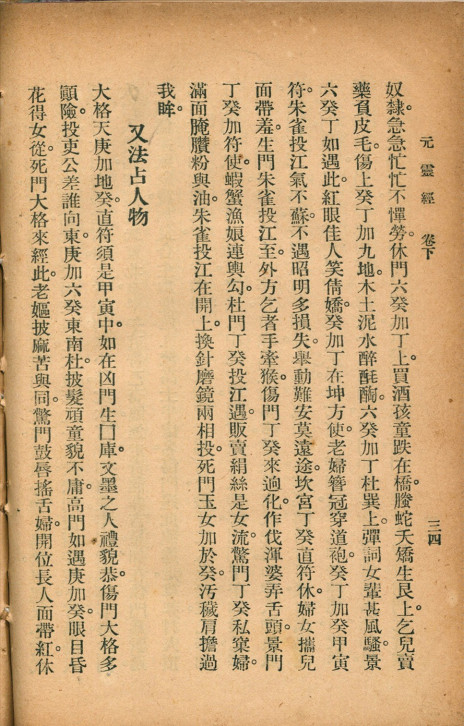 元靈經 卷下
三四
奴隸。急急忙忙不憚勞。休門六癸加丁上。買酒孩童跌在橋。騰蛇夭矯生艮上。乞兒賣
藥負皮毛。傷上癸丁加九地。木土泥水醉酕醄。六癸加丁杜巽上。彈詞女輩甚風騷。景
六癸丁如遇此。紅眼佳人笑倩嬌。癸加丁在坤方使。老婦簪冠穿道袍。癸丁加癸甲寅
符。朱雀投江氣不蘇。不遇昭明多損失。舉動難安莫遠途。坎宮丁癸直符休。婦女攜兒
面帶羞。生門朱雀投江至。外方乞者手牽猴。傷門丁癸來逈化。作伐渾婆弄舌頭。景門
丁癸加符使。蝦蟹漁娘連輿勾。杜門丁癸投江遇。販賣絹絲是女流。驚門丁癸私窠婦。
滿面腌臢粉與油。朱雀投江在開上。換針磨鏡兩相投。死門玉女加於癸。汚穢肩擔過
我眸。
又法占人物
大格天庚加地癸。直符須是甲寅中。如在凶門生囗庫。文墨之人禮貌恭。傷門大格多
顚險。投吏公差誰向東。庚加六癸東南杜。披髮頑童貌不庸。高門如遇庚加癸。眼目昏
花得女從。死門大格來經此。老嫗披麻苦與同。驚門鼓唇搖舌婦。開位長人面帶紅。休